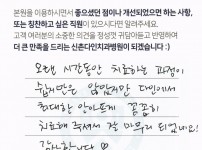 본원을 이용하시면서 좋으셨던 점이나 개선되었으면 하는 사항,
또는 칭찬하고 싶은 직원이 있으시다면 알려주세요.
고객 여러분의 소중한 의견을 정성껏 귀담아듣고 반영하여
더 큰 만족을 드리는 신촌다인치과병원이 되겠습니다 :)
오랜 시간동안 치료하는 과정이
쉽지만은 않았지만 다인에서
최대한 안아프게 꼼꼼히
치료해 주셔서 잘 마무리 되었네요!
감사합니다 ♡